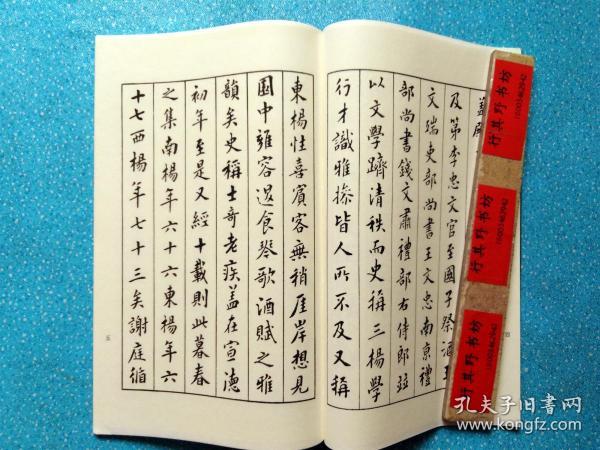 及第李忠文官至國子祭酒王
文瑞吏部尚書王文忠南京禮
部尚書錢文肅禮部右侍郎茲
以文學躋清秩而史稱三楊學
行才識雅操皆人所不及又稱
東楊性喜賓客無稍厓岸想見
園中雍容退食琴歌酒賦之雅
韻矣史稱士奇老疾蓋在宣德
初年至是又經十載則此暮春
之集南楊年六十六東楊年六
十七西楊年七十三矣謝庭循
五
行其野书坊
10003462942
行其野书坊
10003462942
行其野书坊
10003462942
孔夫子旧书网
www.kongfz.com